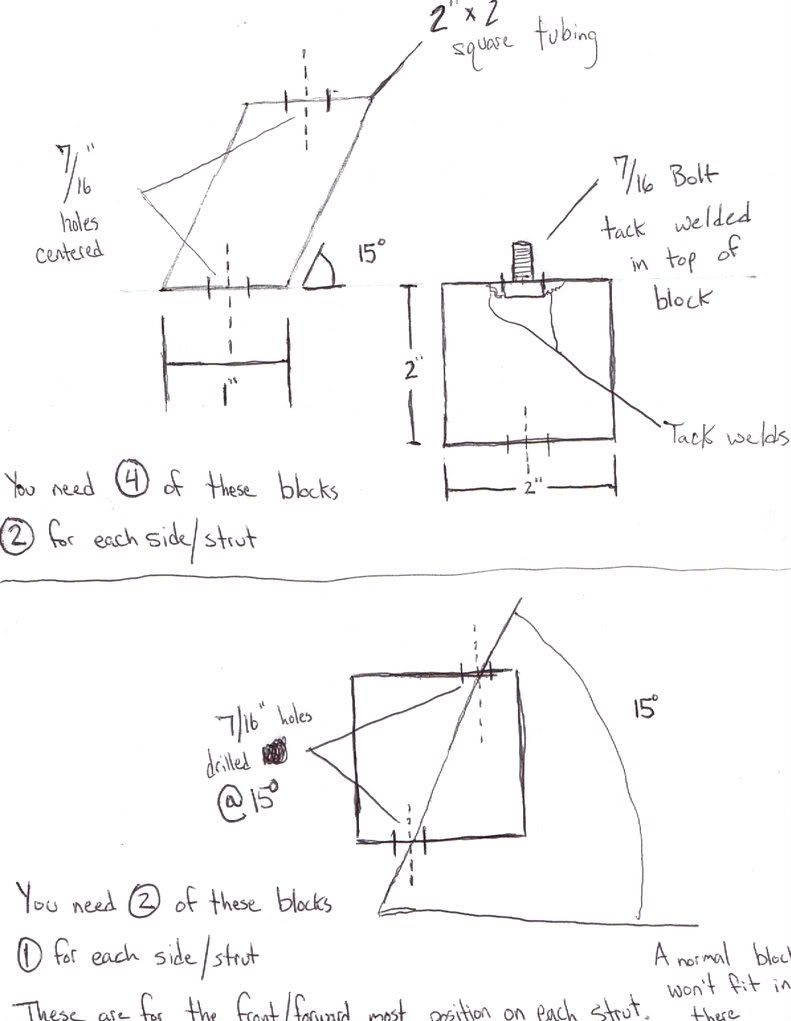 2" x 2
square tubing
7/16"
holes
centered
15°
7/16 Bolt
tack welded
in top of
block
1"
2"
2"
Tack welds
You need 4 of these blocks
2 for each side/strut
7/16" holes
drilled
@ 15°
15°
You need 2 of these blocks
1 for each side/strut
A normal bloc
won't fit in
there
These are for the front/forward most position on each strut.